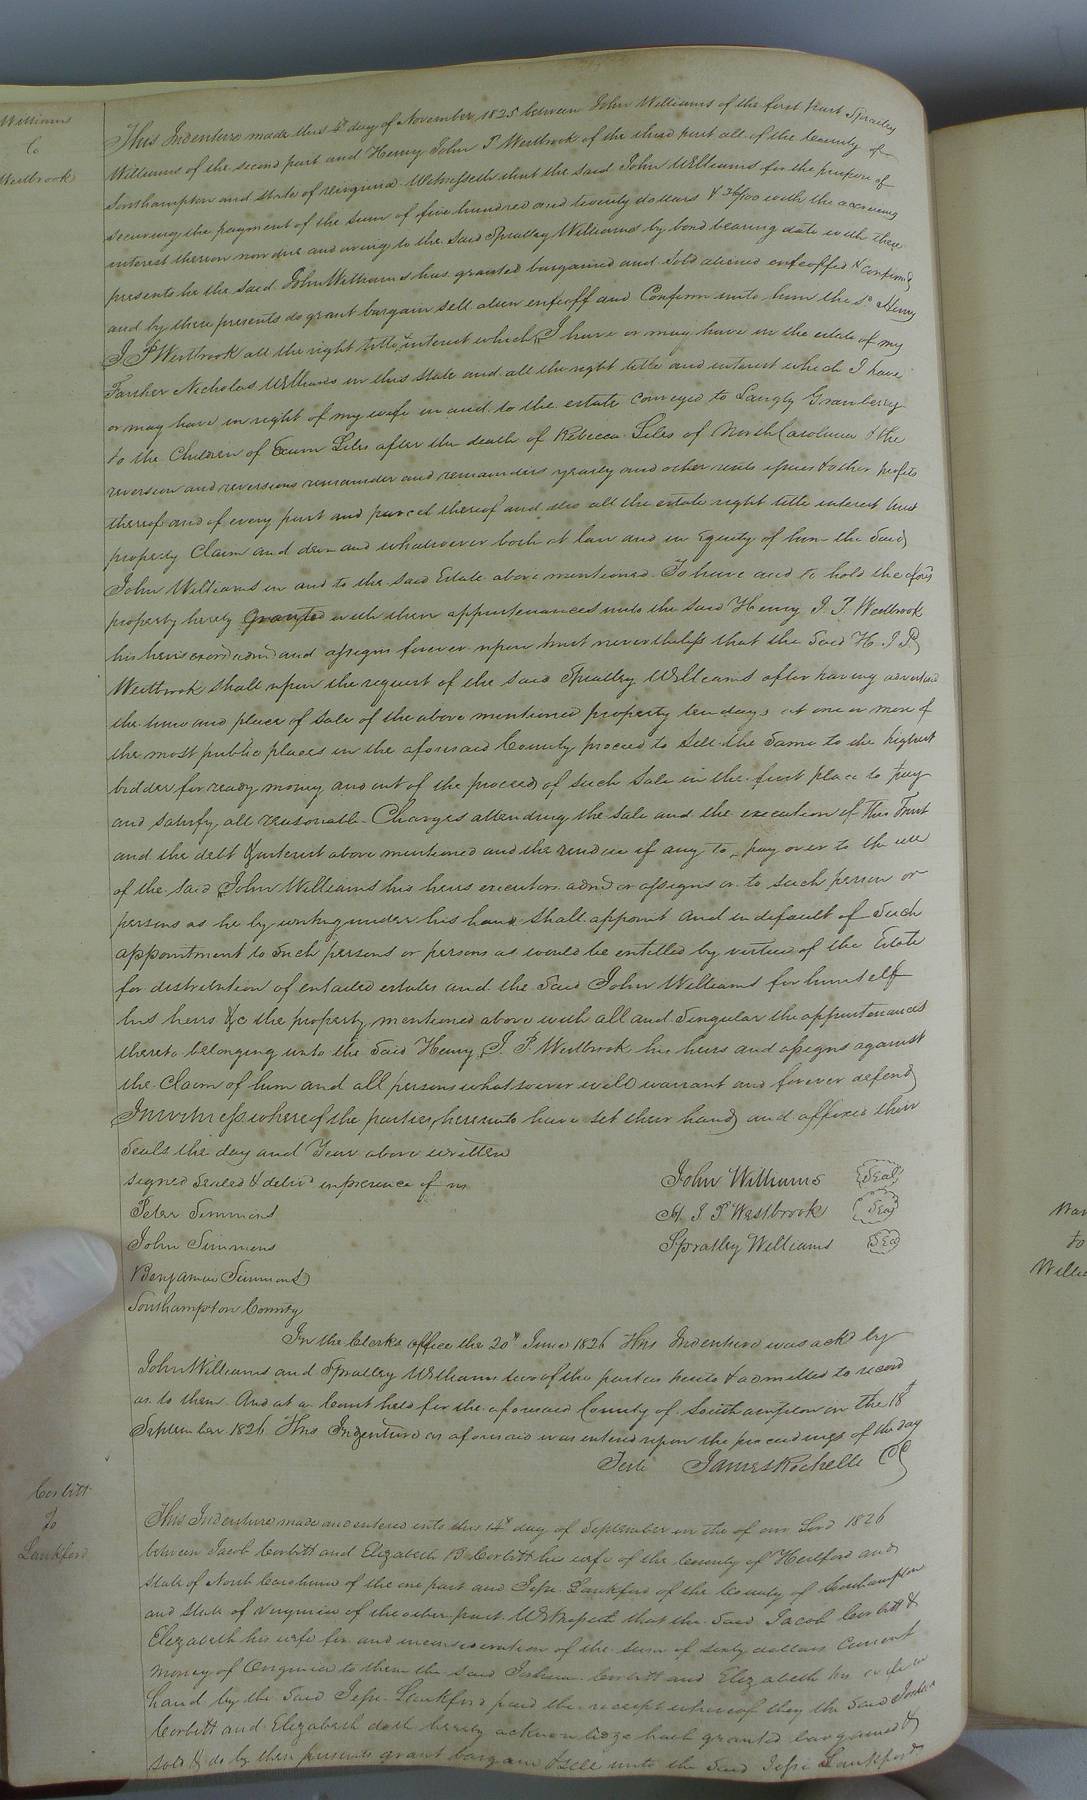 Williams
to
Westbrook
This Indenture made this 4th day of November 1825 between John Williams of the first part Spratley
Williams of the second part and Henry John P Westbrook of the third part all of the County of
Southampton and State of Virginia Witnesseth that the said John Williams for the purpose of
securing the payment of the sum of five hundred and twenty dollars & 36/100 with the accruing
interest thereon now due and owing to the said Spratley Williams by bond bearing date with these
presents he the said John Williams has granted bargained and sold aliened enfeoffed & confirmed
and by these presents do grant bargain sell alien enfeoff and Confirm unto him the sd Henry
J P Westbrook all the right title & interest which I have or may have in the estate of my
Farther Nicholas Williams in this State and all the right title and interest which I have
or may have in right of my wife in and to the estate conveyed to Langly Granberry
to the Children of Exum Liles after the death of Rebecca Liles of North Carolina & the
reversion and reversions remainder and remainders yearly and other rents issues & other profits
thereof and of every part and parcel thereof and also all the estate right title interest trust
property Claim and demand whatsoever both at law and in Equity of him the Said
John Williams in and to the said Estate above mentioned To have and to hold the afors
property hereby Granted with their appurtenances unto the said Henry J. P. Westbrook
his heirs exors admr and assigns forever upon trust nevertheless that the Said H. J P
Westbrook shall upon the request of the said Spratley Williams after having advertised
the time and place of sale of the above mentioned property ten days at one or more of
the most public places in the aforesaid County proceed to sell the Same to the highest
bidder for ready money and out of the proceed of such Sale in the first place to pay
and satisfy all reasonable Charges attending the sale and the execution of this Trust
and the debt & interest above mentioned and the residue if any to pay over to the use
of the said John Williams his heirs executors admr or assigns or to such person or
persons as he by writing under his hand Shall appoint and in default of Such
appointment to Such persons or persons as would be entitled by virtue of the Estate
for distribution of entailed estates and the Said John Williams for himself
his heirs &c the property mentioned above with all and Singular the appurtenances
thereto belonging unto the Said Henry J. P. Westbrook his heirs and assigns against
the Claim of him and all persons whatsoever will warrant and forever defend
In witness whereof the parties hereunto have set their hand and affixed their
Seals the day and Year above written
signed Sealed & delivd in presence of us
John Williams Seal
Peter Simmons
H. J. P. Westbrook Seal
John Simmons
Spratley Williams Seal
Benjamin Simmons
Southampton County
In the Clerks office the 20th June 1826 This Indenture was ackd by
John Williams and Spratley Williams two of the parties hereto & admitted to record
as to them And at a Court held for the aforesaid County of Southampton on the 18th
September 1826 This Indenture as aforesaid was entered upon the proceedings of the day
Teste James Rochelle CC
Corbitt
To
Lankford
This Indenture made and entered into this 14th day of September in the of our Lord 1826
between Jacob Corbitt and Elizabeth B Corbitt his wife of the County of Hertford and
State of North Carolina of the one part and Jesse Lankford of the County of Southampton
and State of Virginia of the other part Witnesseth that the Said Jacob Corbitt &
Elizabeth his wife for and in consideration of the sum of sixty dollars Current
money of Virginia to them the said Joshua Corbitt and Elizabeth his wife in
hand by the Said Jesse Lankford paid the receipt whereof they the Said Joshua
Corbitt and Elizabeth doth hereby acknowledge hath granted bargained &
sold & do by these presents grant bargain & sell unto the Said Jesse Lankford
to